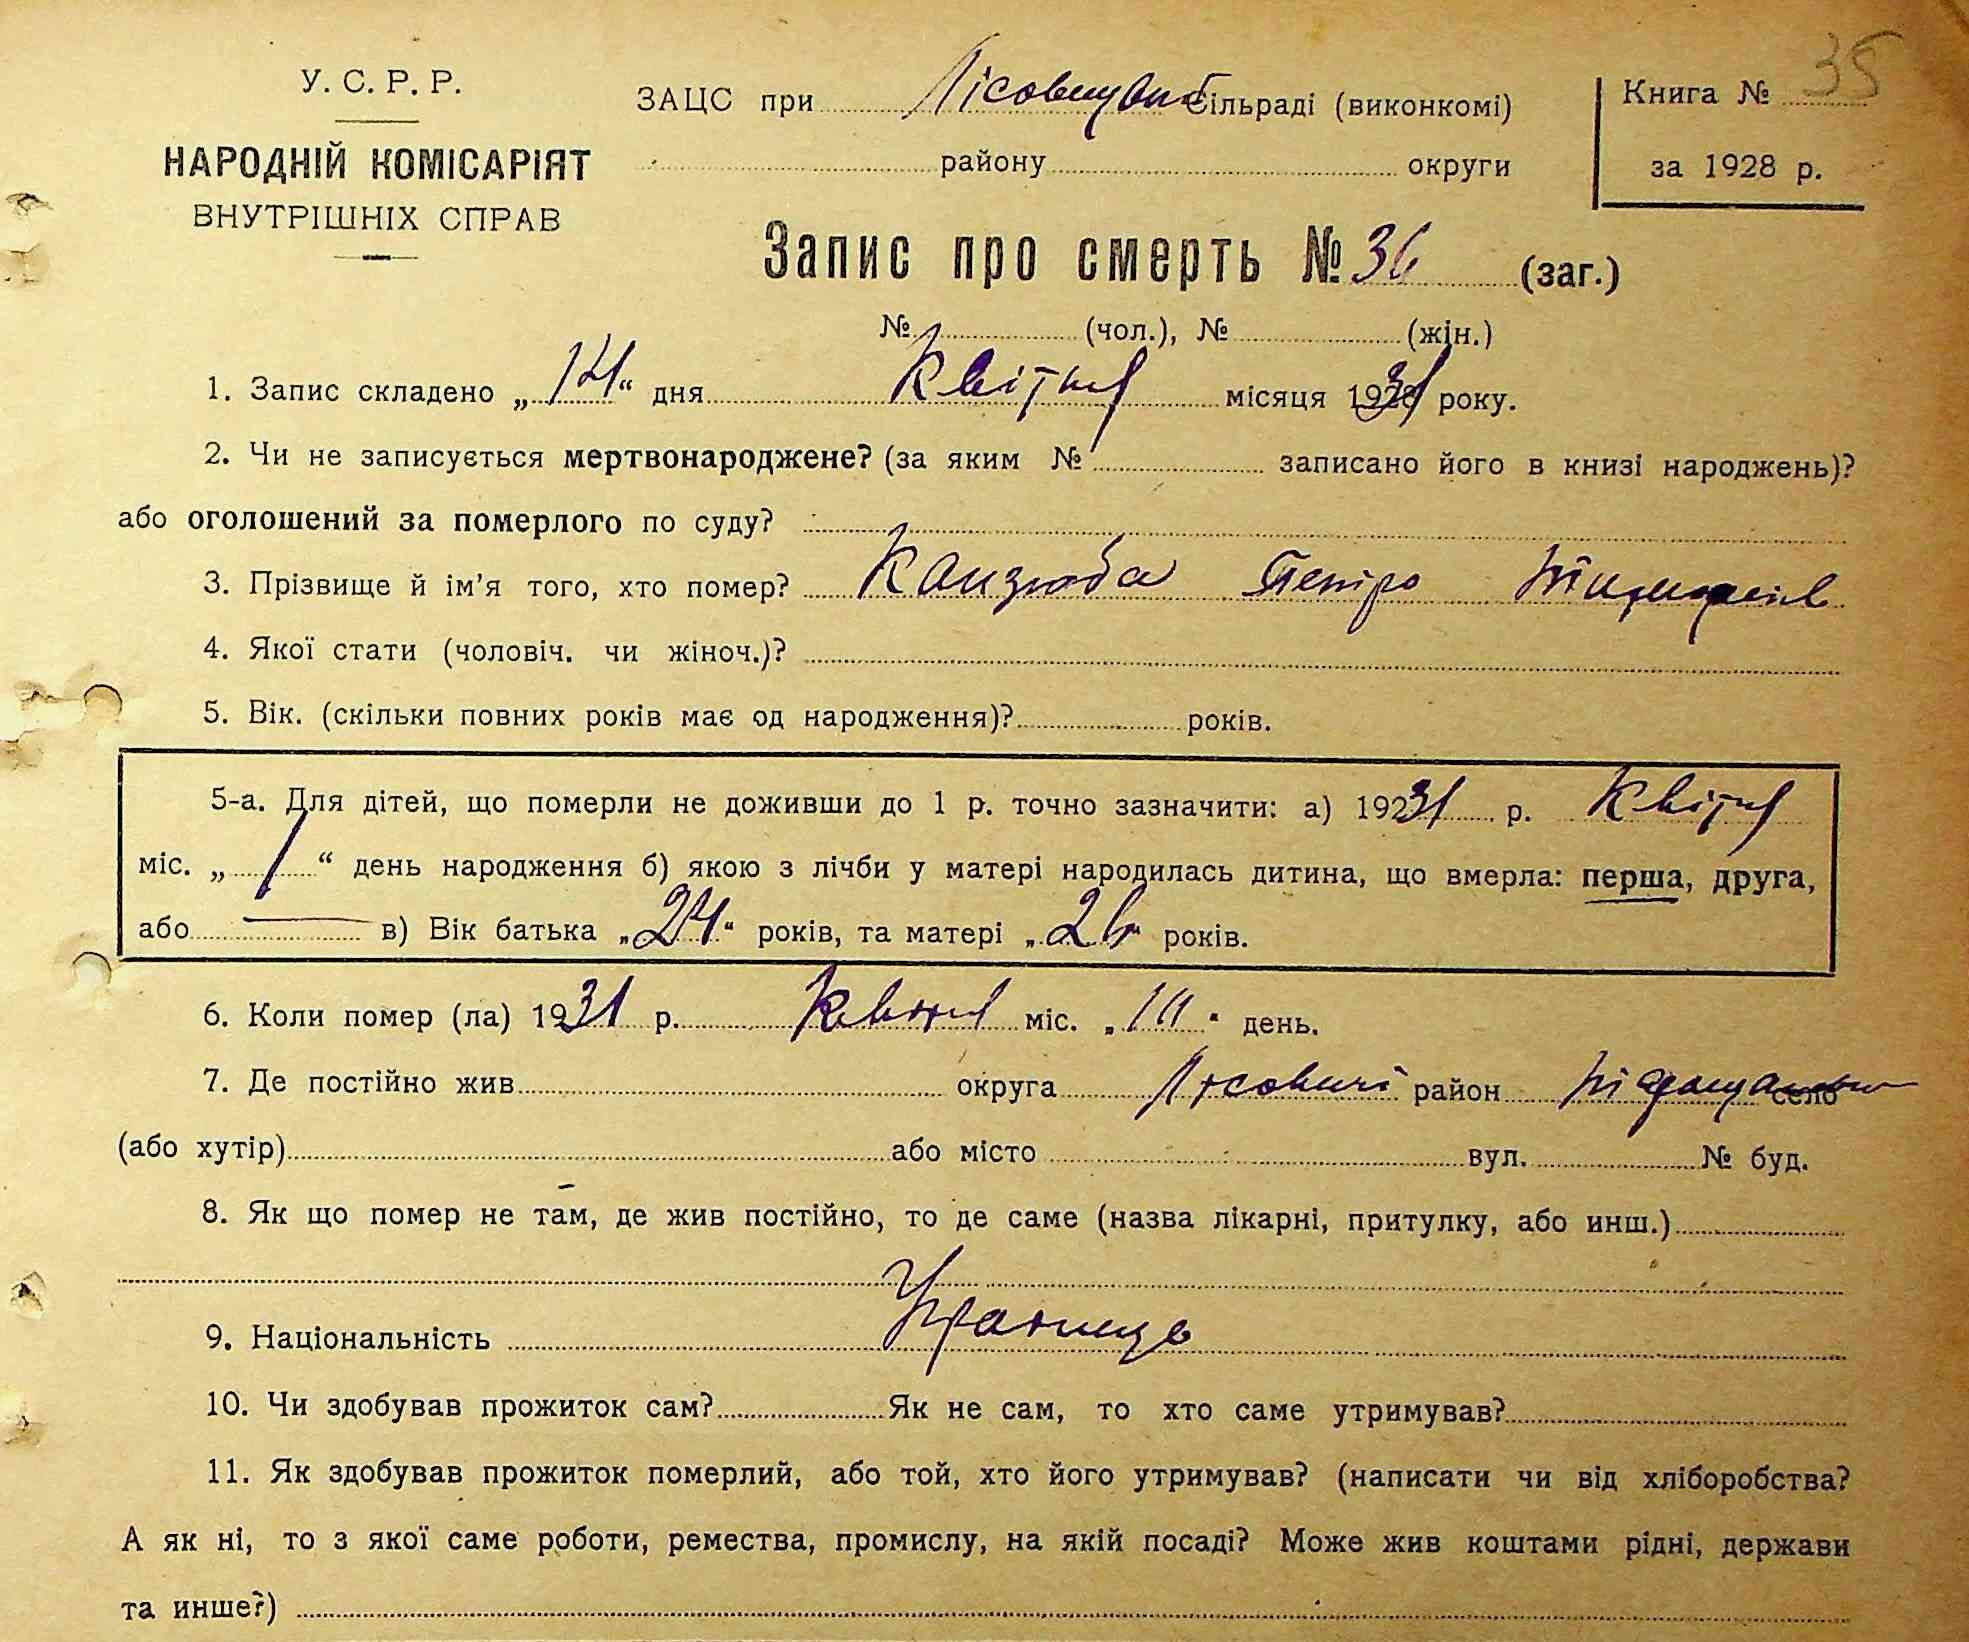 У. С. Р. Р.
НАРОДНІЙ КОМІСАРІЯТ
ВНУТРІШНІХ СПРАВ
ЗАЦС при сільраді (виконкомі)
району округи
Книга № 35
за 1928 р.
Запис про смерть № 36 (заг.)
№ (чол.), № (жін.)
1. Запис складено „14“ дня Квітня місяця 1931 року.
2. Чи не записується мертвонароджене? (за яким № записано його в книзі народжень)?
або оголошений за померлого по суду?
3. Прізвище й ім'я того, хто помер? Канзюба Петро
4. Якої стати (чоловіч. чи жіноч.)?
5. Вік. (скільки повних років має од народження)? років.
5-а. Для дітей, що померли не доживши до 1 р. точно зазначити: а) 1931 р. Квітня
міс. „1“ день народження б) якою з лічби у матері народилась дитина, що вмерла: перша, друга,
або — в) Вік батька „24“ років, та матері „26“ років.
6. Коли помер (ла) 1931 р. Квітня міс. „14“ день.
7. Де постійно жив округа район село
(або хутір) або місто вул. № буд.
8. Як що помер не там, де жив постійно, то де саме (назва лікарні, притулку, або инш.)
9. Національність Украинець
10. Чи здобував прожиток сам? Як не сам, то хто саме утримував?
11. Як здобував прожиток померлий, або той, хто його утримував? (написати чи від хліборобства?
А як ні, то з якої саме роботи, ремества, промислу, на якій посаді? Може жив коштами рідні, держави
та инше?)